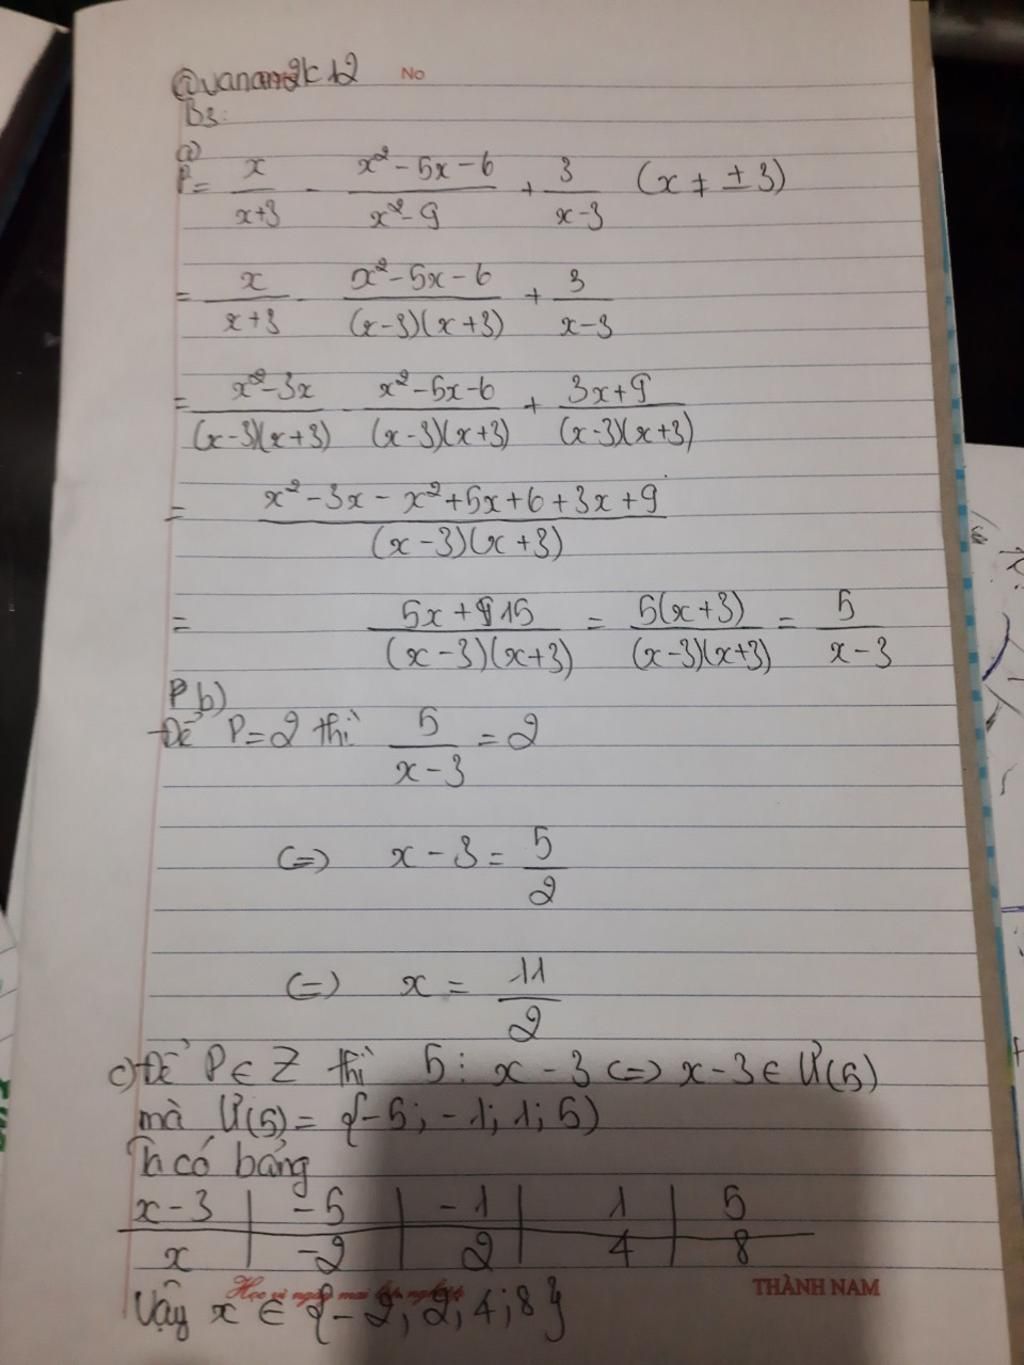 @vanam2k12 No
B3:
a)
P= x/x+3 - x²-5x-6/x²-9 + 3/x-3 (x ≠ ±3)
= x/x+3 - x²-5x-6/(x-3)(x+3) + 3/x-3
= x²-3x/(x-3)(x+3) - x²-5x-6/(x-3)(x+3) + 3x+9/(x-3)(x+3)
= x²-3x-x²+5x+6+3x+9/(x-3)(x+3)
= 5x+15/(x-3)(x+3) = 5(x+3)/(x-3)(x+3) = 5/x-3
P b)
Để P=2 thì 5/x-3 = 2
(=) x-3 = 5/2
(=) x = 11/2
c) Để P ∈ Z thì 5 ⋮ x-3 <=> x-3 ∈ Ư(5)
mà Ư(5) = {-5; -1; 1; 5)
Ta có bảng
x-3 | -5 | -1 | 1 | 5
x | -2 | 2 | 4 | 8
Học vì ngày mai THÀNH NAM
Vậy x ∈ {-2; 2; 4; 8}